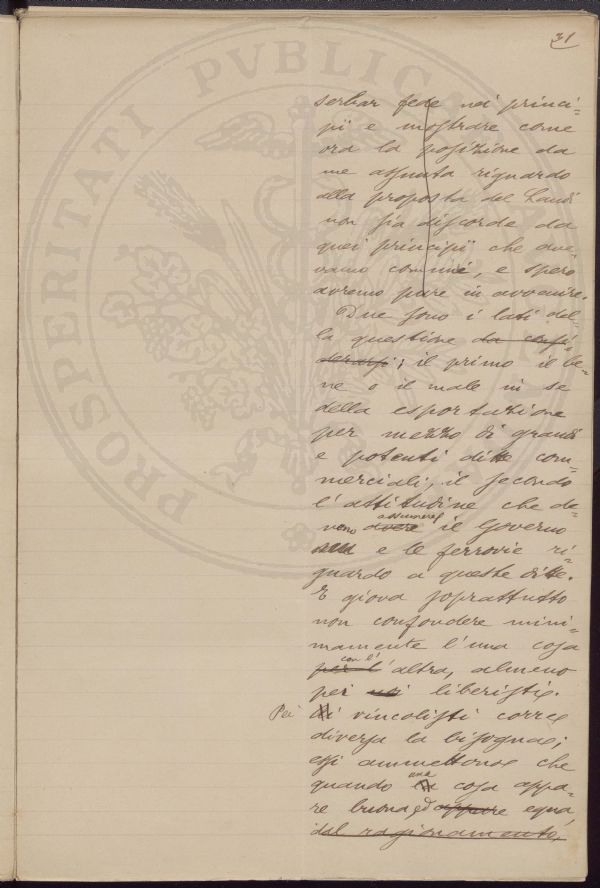 31
PROSPERITATI PVBLICA
serbar fede nei princi-
pii e mostrare come
ora la posizione da
me assunta riguardo
alla proposta del Landi
non sia discorde da
quei principii che ave-
vamo comuni, e spero
avremo pure in avvenire.
Due sono i lati del-
la questione da consi-
derarsi; il primo il be-
ne o il male in se
della esportazione
per mezzo di grandi
e potenti ditte com-
merciali; il secondo
l'attitudine che de-
assumere
vono avere il Governo
e le ferrovie ri-
guardo a queste ditte.
E giova soprattutto
non confondere mini-
mamente l'una cosa
con l'
per l'altra, almeno
pei noi liberisti.
Pei vincolisti corre
diversa la bisogna;
essi ammettono che
una
quando la cosa appa-
re buona ed appare equa
dal ragionamento,